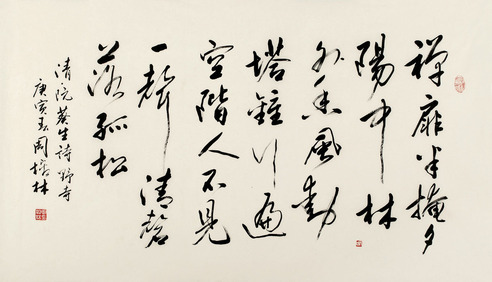 禪扉半掩夕
陽中林
外來風動
塔鐘行遍
空階人不見
一聲清磬
落孤松
清阮葵生詩野寺
庚寅春周林